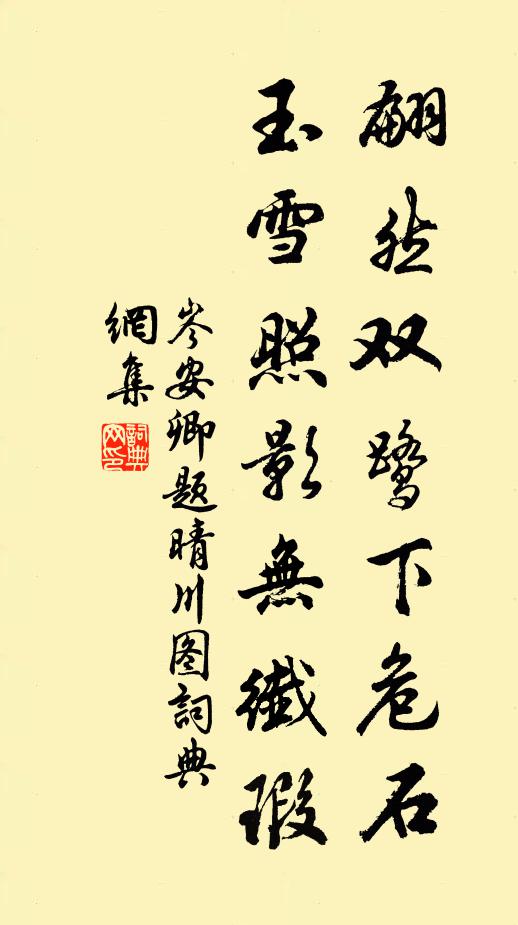 翩然双鹭下危石
玉雪照影無纖瑕
岑安卿题晴川图詞典
網集
詞典
网印